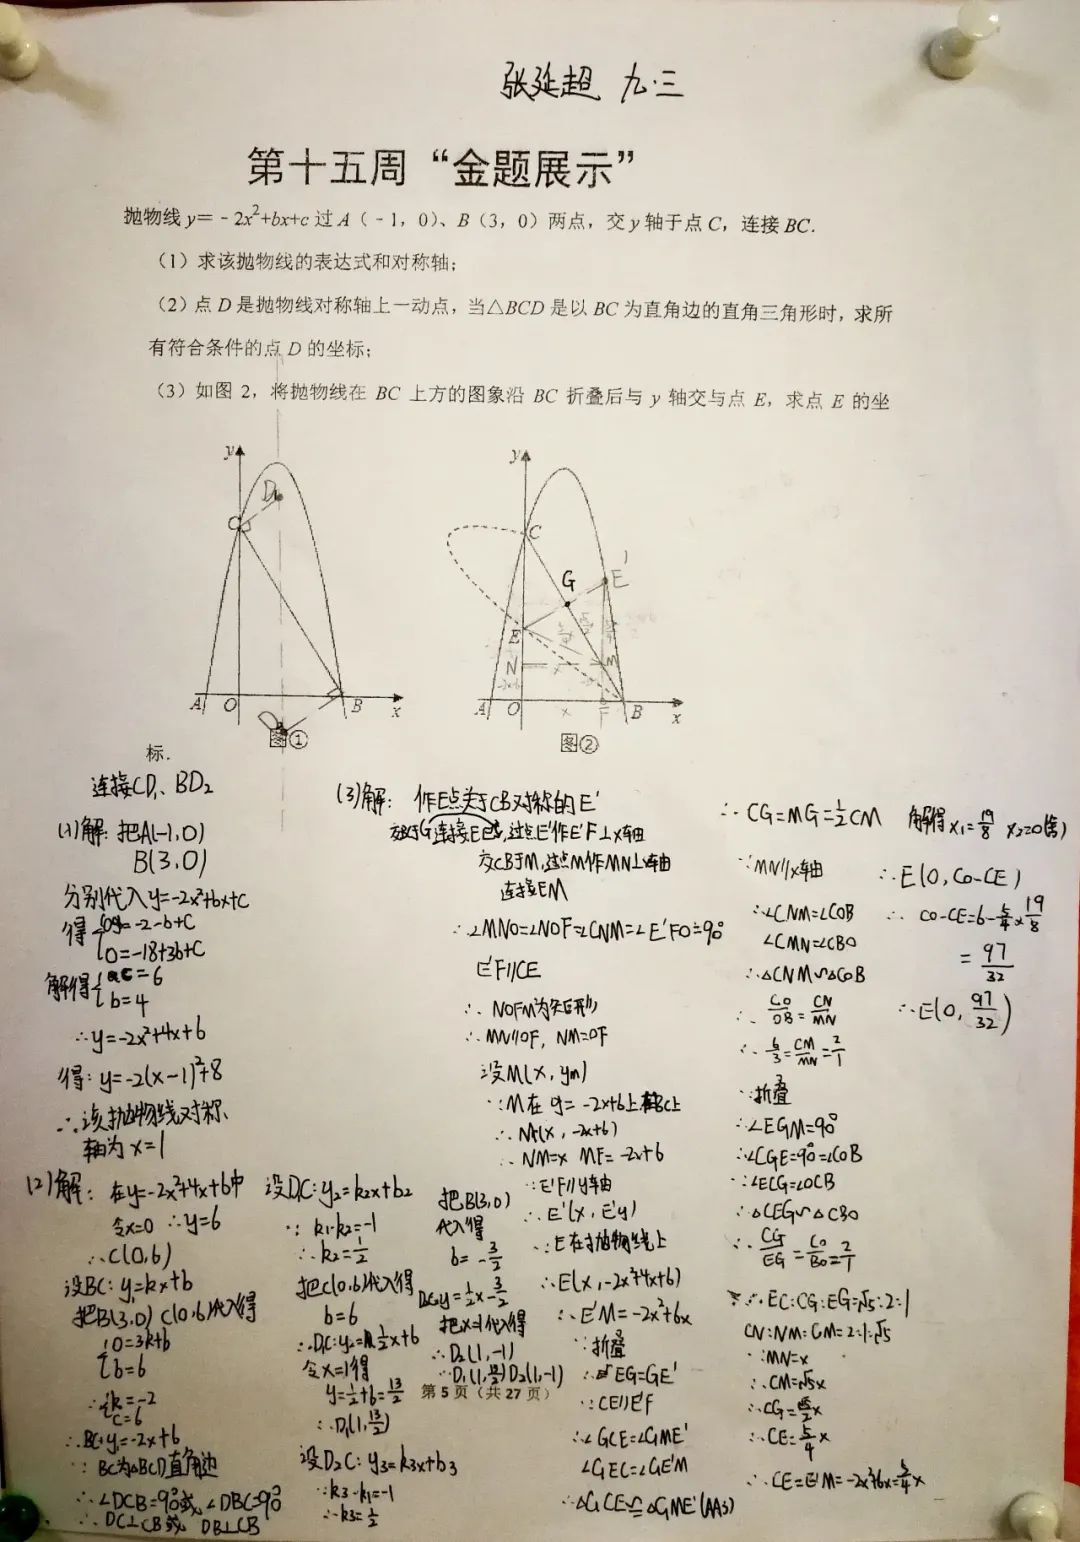 张延超 九·三
第十五周 “金题展示”
抛物线 y=-2x²+bx+c 过 A(-1,0)、B(3,0)两点,交 y 轴于点 C,连接 BC.
(1)求该抛物线的表达式和对称轴;
(2)点 D 是抛物线对称轴上一动点,当△BCD 是以 BC 为直角边的直角三角形时,求所
有符合条件的点 D 的坐标;
(3)如图 2,将抛物线在 BC 上方的图象沿 BC 折叠后与 y 轴交与点 E,求点 E 的坐
标.
y
D₁
C
A
O
B
x
图①
y
C
E'
G
E
N
M
A
O
F
B
x
图②
连接CD₁、BD₂
(1)解:把A(-1,0)
B(3,0)
分别代入y=-2x²+bx+c
得{0=-2-b+c
0=-18+3b+c
解得{c=6
b=4
∴y=-2x²+4x+6
得:y=-2(x-1)²+8
∴该抛物线对称
轴为x=1
(2)解:在y=-2x²+4x+6中
令x=0 ∴y=6
∴C(0,6)
设BC:y₁=kx+b
把B(3,0) C(0,6)代入得
{0=3k+b
b=6
∴{k=-2
c=6
∴BC:y₁=-2x+6
∵BC为△BCD直角边
∴∠DCB=90°或∠DBC=90°
∴DC⊥CB或 DB⊥CB
设D₁C:y₂=k₂x+b₂
∵k₁·k₂=-1
∴k₂=1/2
把C(0,6)代入得
b=6
∴D₁C:y₂=1/2x+6
令x=1得
y=1/2+6=13/2
∴D₁(1,13/2)
设D₂C:y₃=k₃x+b₃
∵k₃·k₁=-1
∴k₃=1/2
把B(3,0)
代入得
b=-3/2
y=1/2x-3/2
把x=1代入得
∴D₂(1,-1)
∴D₁(1,13/2) D₂(1,-1)
第 5 页(共 27 页)
(3)解:作E点关于CB对称的E'
交于G 连接EE',过点E'作E'F⊥x轴
交CB于M,过点M作MN⊥y轴
连接EM
∴∠MNO=∠NOF=∠CNM=∠E'FO=90°
E'F//CE
∴NOFM为矩形
∴MN//OF,NM=OF
设M(x,ym)
∵M在y=-2x+6上
∴M(x,-2x+6)
∴NM=x MF=-2x+6
∵E'F//y轴
∴E'(x,E'y)
∵E在抛物线上
∴E(x,-2x²+4x+6)
∴E'M=-2x²+6x
∵折叠
∴EG=GE'
∵CE//E'F
∴∠GCE=∠GME'
∠GEC=∠GE'M
∴△GCE≌△GME'(AAS)
∴CG=MG=1/2CM
∵MN//x轴
∴∠CNM=∠COB
∠CMN=∠CBO
∴△CNM∽△COB
∴CO/OB=CN/MN
∴6/3=CM/MN=2/1
∵折叠
∴∠EGM=90°
∴∠CGE=90°=∠COB
∵∠ECG=∠OCB
∴△CEG∽△CBO
∴CG/EG=CO/BO=2/1
∴EC:CG:EG=√5:2:1
CN:NM:CM=2:1:√5
∵MN=x
∴CM=√5x
∴CG=√5/2x
∴CE=5/4x
∴CE=E'M=-2x²+6x=5/4x
解得x₁=19/8 x₂=0(舍)
∴E(0,CO-CE)
∴CO-CE=6-5/4×19/8
=97/32
∴E(0,97/32)